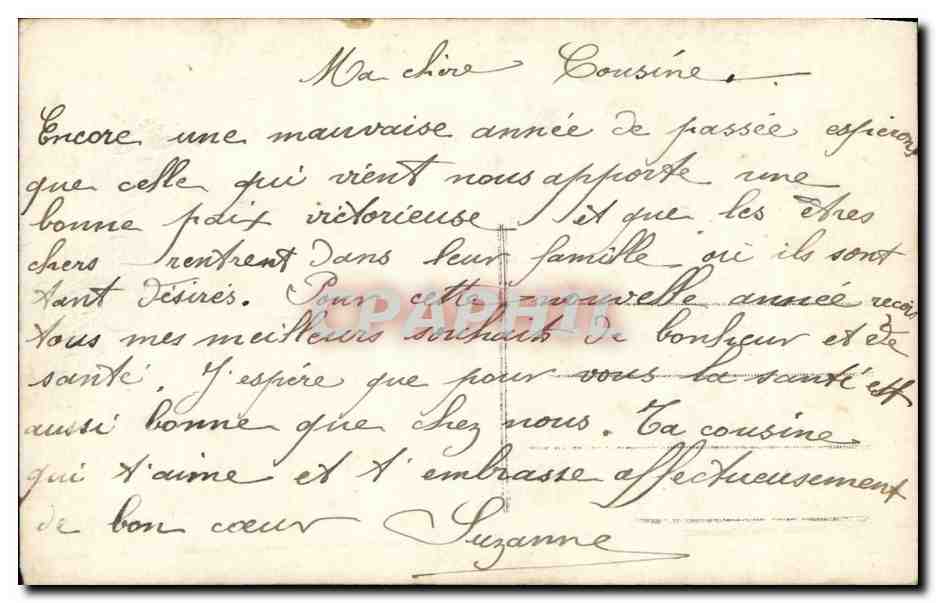 Ma chère Cousine.
Encore une mauvaise année de passée espérons
que celle qui vient nous apporte une
bonne paix victorieuse et que les êtres
chers rentrent dans leur famille où ils sont
tant désirés. Pour cette nouvelle année reçois
tous mes meilleurs souhaits de bonheur et de
santé. J'espère que pour vous la santé est
aussi bonne que chez nous. Ta cousine
qui t'aime et t'embrasse affectueusement
de bon cœur Suzanne
CPAPHIL